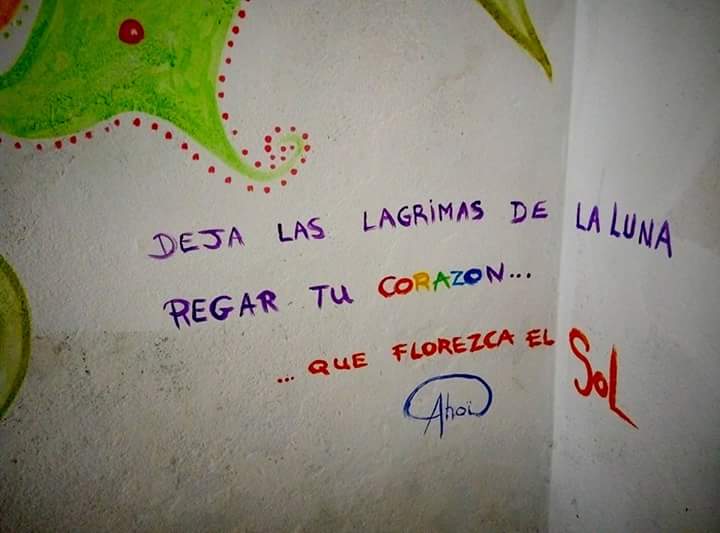 DEJA LAS LAGRIMAS DE LA LUNA
REGAR TU CORAZON...
... QUE FLOREZCA EL SOL
Ahoi